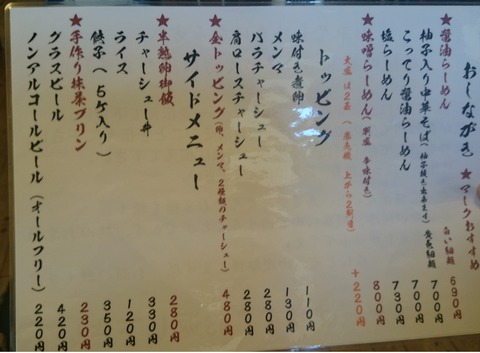 おしながき ★マークおすすめ
★醤油らーめん 白い細麺 690円
柚子入り中華そば(柚子抜き出来ます) 黄色細麺 700円
こってり醤油らーめん 730円
塩らーめん 700円
★味噌らーめん(別盛 辛味付き) 800円
大盛は2玉 +220円
トッピング
味付き煮卵 110円
メンマ 130円
バラチャーシュー 280円
肩ロースチャーシュー 280円
★全トッピング(卵、メンマ、2種類のチャーシュー) 480円
サイドメニュー
★半熟卵御飯 280円
チャーシュー丼 330円
ライス 120円
餃子(5ケ入り) 350円
★手作り抹茶プリン 290円
グラスビール 420円
ノンアルコールビール(オールフリー) 220円